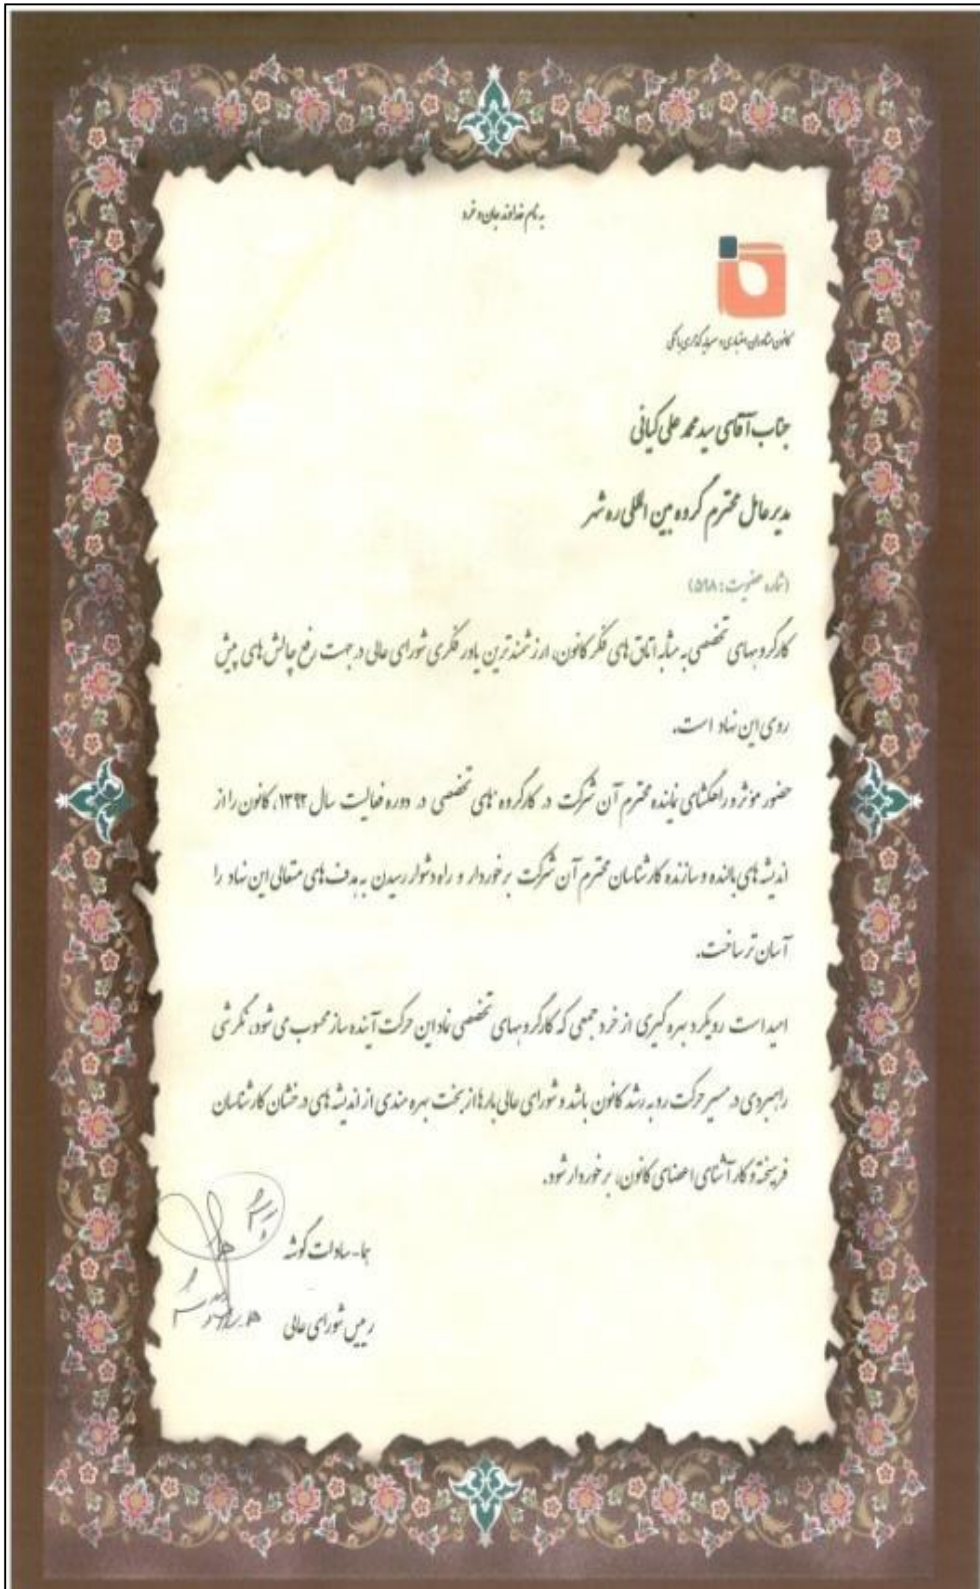 به نام خداوند جان و خرد
کانون مشاوران اعتباری و سرمایه گذاری بانکی
جناب آقای سید محمد علی کیانی
مدیر عامل محترم گروه بین المللی ره شهر
(شماره عضویت: ۵۹۸)
کارگروههای تخصصی به مثابه اتاق های فکر کانون، ارزشمندترین یاور فکری شورای عالی در جهت رفع چالش های پیش
روی این نهاد است.
حضور مؤثر و راهگشای نماینده محترم آن شرکت در کارگروه های تخصصی در دوره فعالیت سال ۱۳۹۲، کانون را از
اندیشه های بالنده و سازنده کارشناسان محترم آن شرکت برخوردار و راه دشوار رسیدن به هدف های متعالی این نهاد را
آسان تر ساخت.
امید است رویکرد بهره گیری از خرد جمعی که کارگروههای تخصصی نماد این حرکت آینده ساز محسوب می شود، نگرشی
راهبردی در مسیر حرکت رو به رشد کانون باشد و شورای عالی بارها از بخت بهره مندی از اندیشه های درخشان کارشناسان
فرهیخته و کارآشنای اعضای کانون، برخوردار شود.
هما - سادلت گوشه
رییس شورای عالی